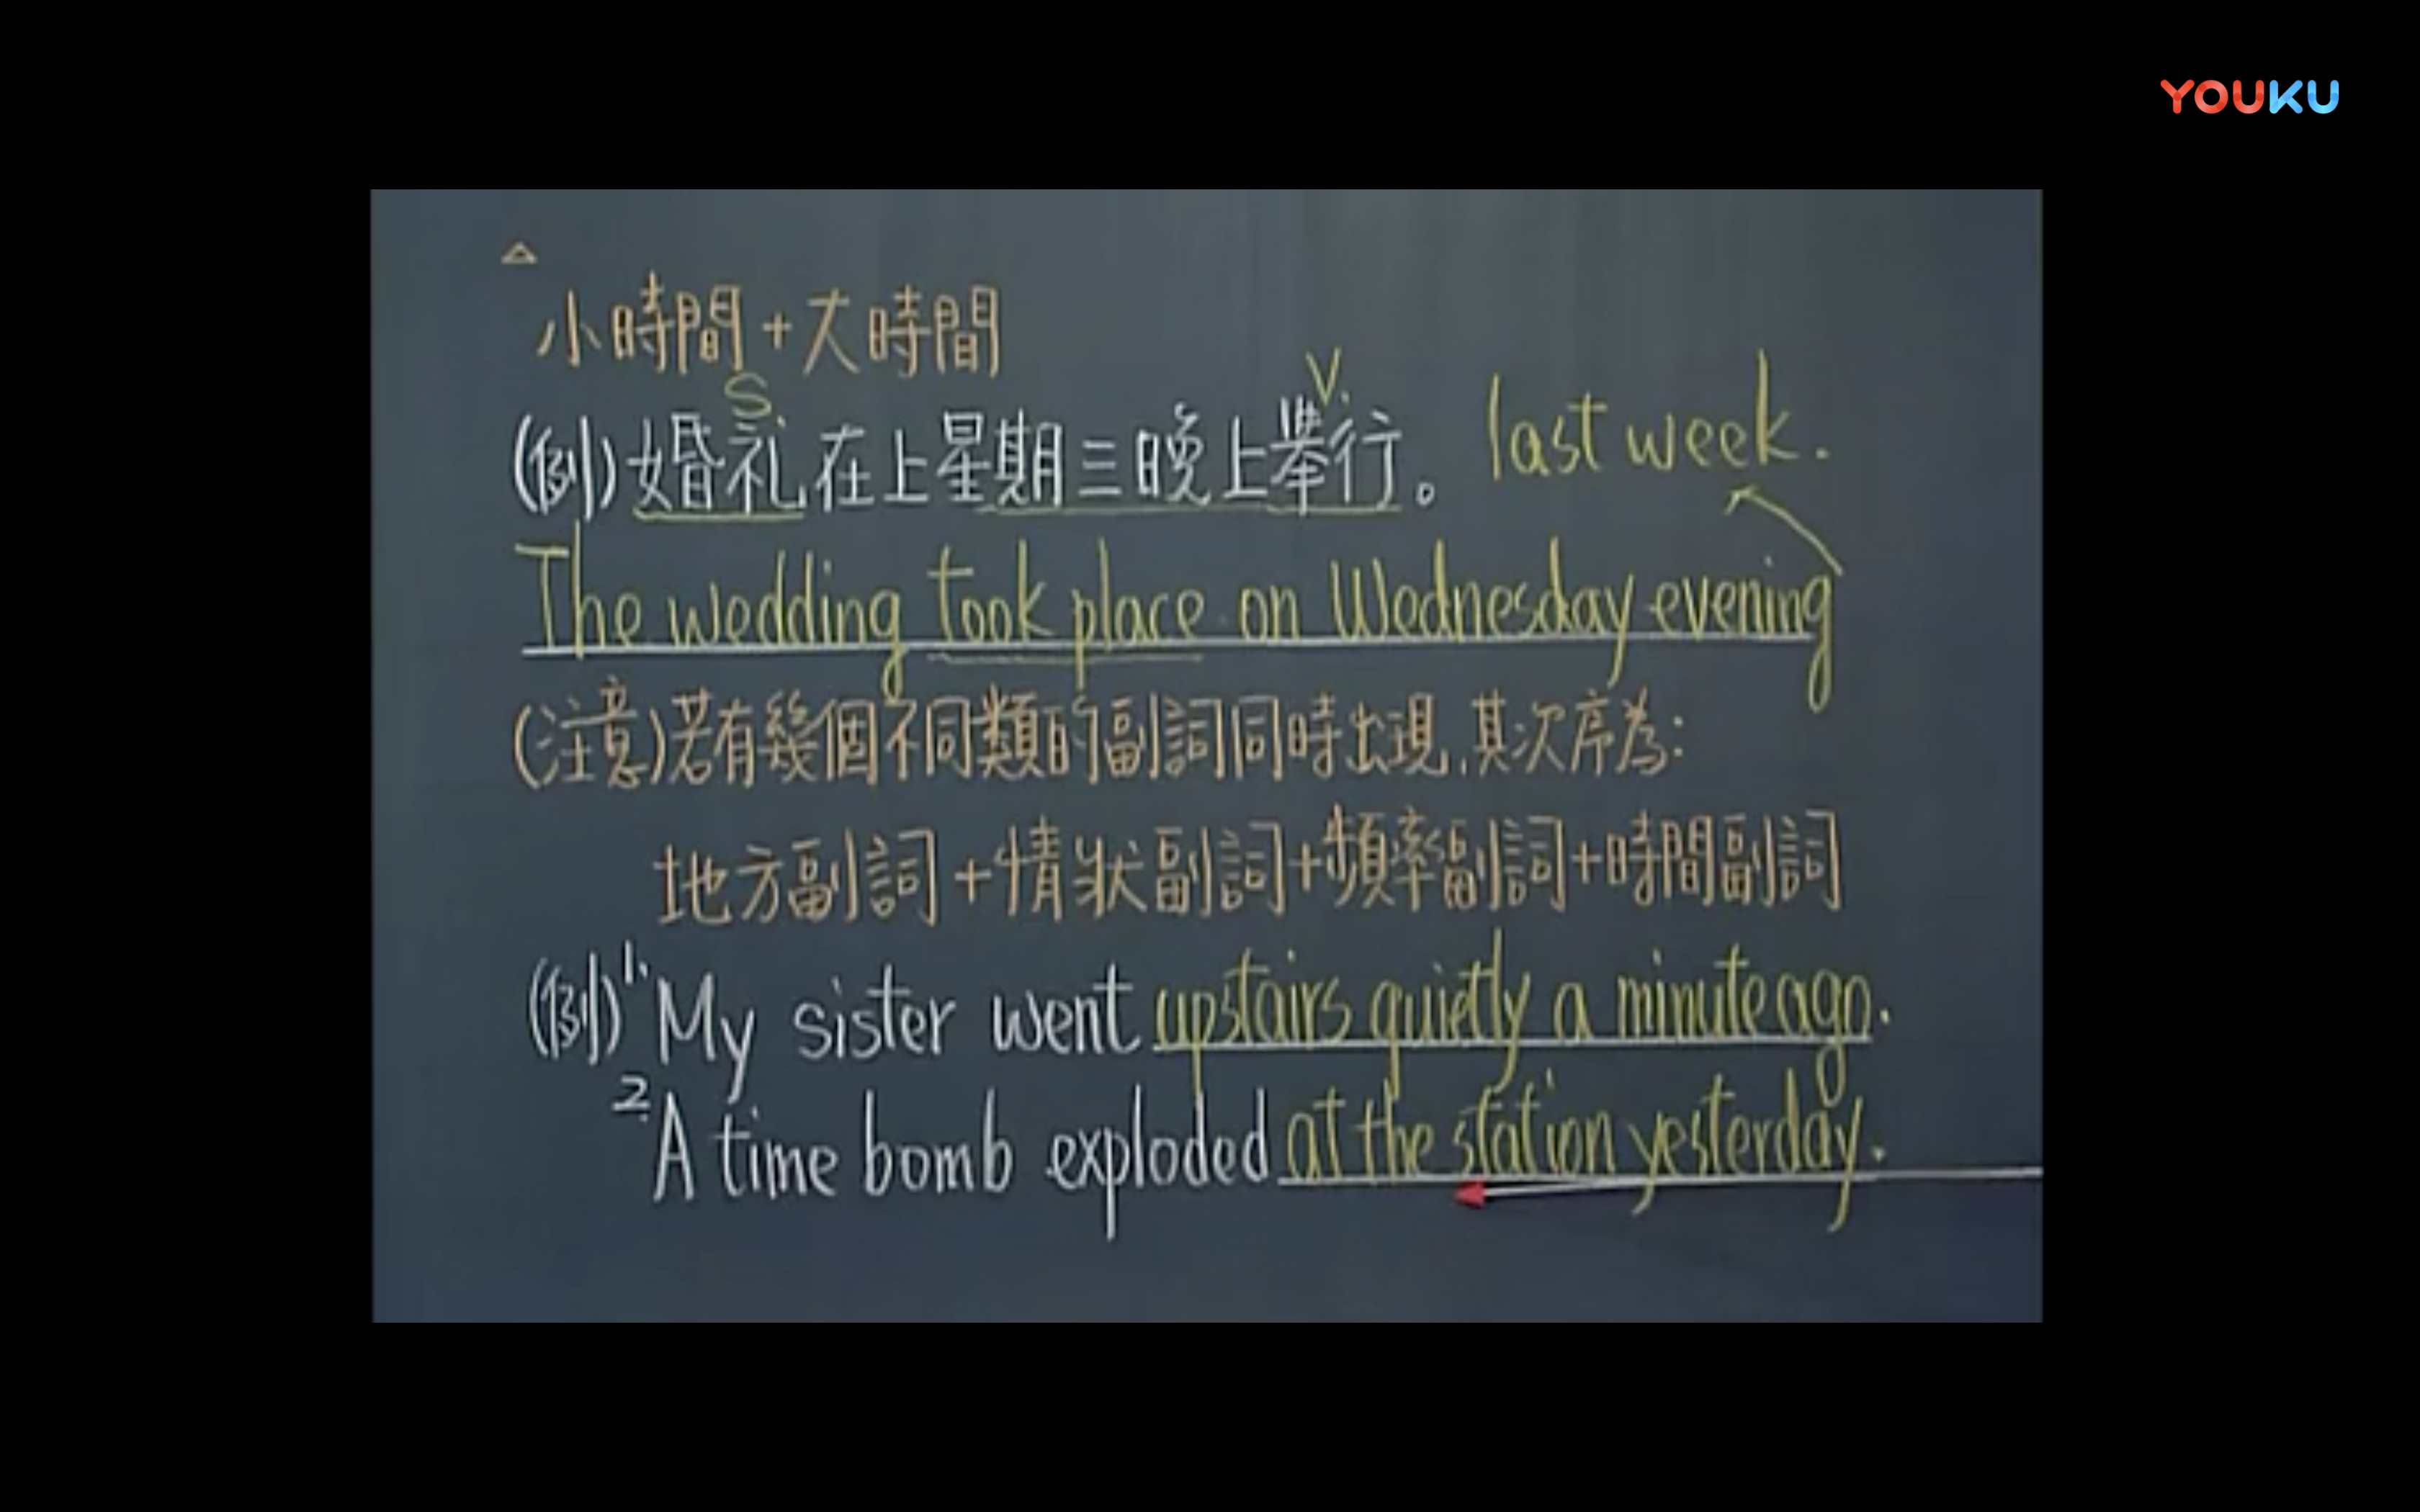 YOUKU
△
小時間+大時間
S. V.
(例)婚礼在上星期三晚上舉行。 last week.
The wedding took place on Wednesday evening
(注意)若有幾個不同類的副詞同時出現,其次序為:
地方副詞+情狀副詞+頻率副詞+時間副詞
(例)1. My sister went upstairs quietly a minute ago.
2. A time bomb exploded at the station yesterday.